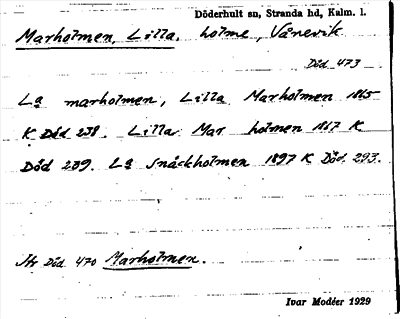 Döderhult sn, Stranda hd, Kalm. l.
Marholmen, Lilla, holme, Vånevik
Död. 473
La marholmen, Lilla Marholmen 1865
K Död 238. Lilla Mar holmen 1867 K
Död 239. La Snäckholmen 1897 K Död. 293.
Jfr Död. 470 Marholmen.
Ivar Modéer 1929